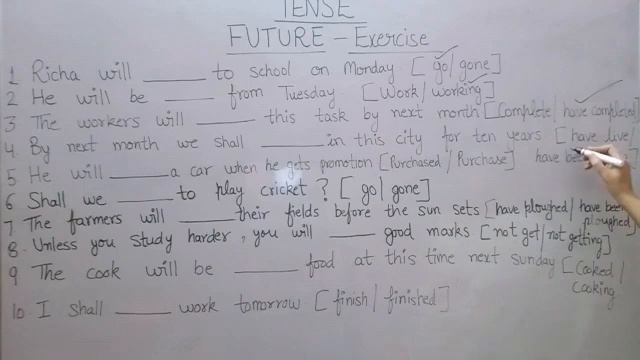 TENSE
FUTURE - Exercise
1 Richa will ____ to school on Monday. [go/gone]
2 He will be ____ from Tuesday. [Work/working]
3 The workers will ____ this task by next month [Complete/have completed]
4. By next month we shall ____ in this city for ten years [have live/
have been
5. He will ____ a car when he gets promotion [Purchased/Purchase]
6 Shall we ____ to play cricket? [go/gone]
7. The farmers will ____ their fields before the sun sets [have ploughed/have been
ploughed]
8. Unless you study harder, you will ____ good marks [not get/not getting]
9 The cook will be ____ food at this time next sunday [Cooked/
Cooking
10. I shall ____ work tomorrow. [finish/finished]